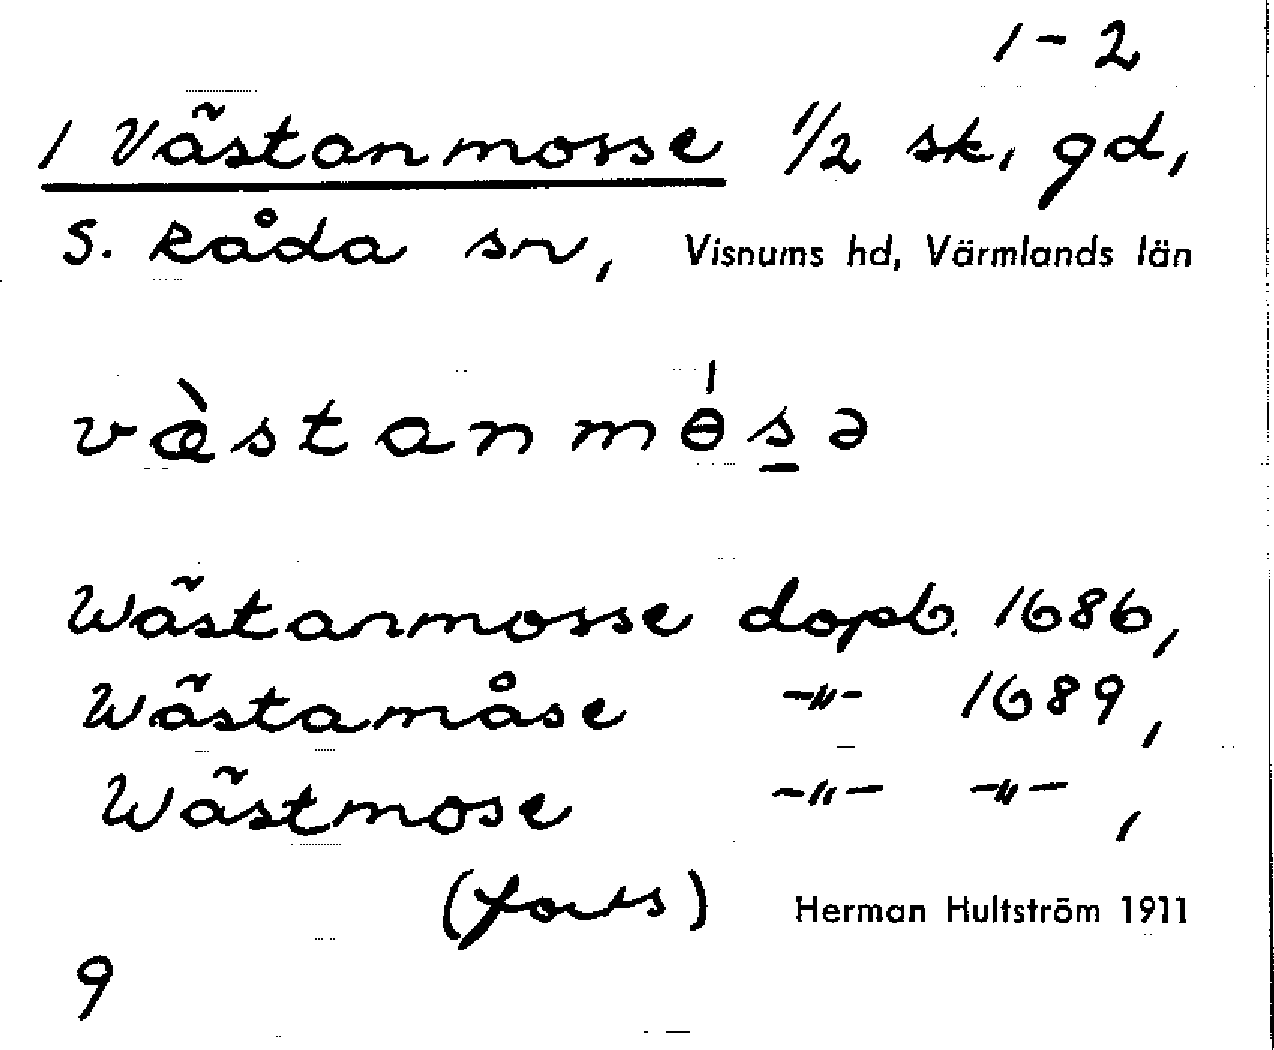 1-2
1 Västanmosse 1/2 sk, gd,
S. Råda sn, Visnums hd, Värmlands län
væ̀stanmɵ́s̲ə
Wästanmosse dopb. 1686,
Wästamåse -"- 1689,
Wästmose -"- -"-,
(forts) Herman Hultström 1911
9